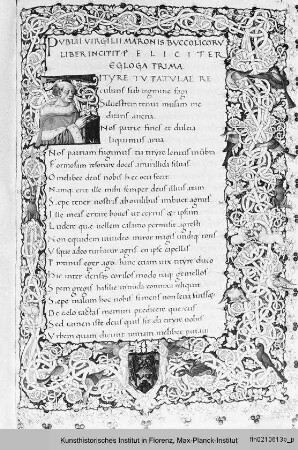 PVBLII VIRGILII MARONIS BVCCOLICORV
LIBER INCIPIT FELICITER
EGLOGA PRIMA
TITYRE TV PATVLAE RE
cubans sub tegmine fagi
Siluestrem tenui musam me
ditaris auena.
Nos patrie fines et dulcia
linquimus arua
Nos patriam fugimus tu tityre lentus in umbra
Formosam resonare doces amarillida siluas
O melibee deus nobis hec ocia fecit
Namque erit ille mihi semper deus illius aram
Sepe tener nostris ab ouilibus imbuet agnus
Ille meas errare boues ut cernis et ipsum
Ludere que uellem calamo permisit agresti
Non equidem inuideo miror magis undique totis
Vsque adeo turbatur agris en ipse capellas
Protinus eger ago hanc etiam uix tityre duco
Hic inter densas corilos modo namque gemellos
Spem gregis silice in nuda connixa reliquit
Sepe malum hoc nobis si mens non leua fuisset
De celo tactas memini predicere quercus
Sed tamen iste deus qui sit da tityre nobis
Vrbem quam dicunt romam melibee putaui
Kunsthistorisches Institut in Florenz, Max-Planck-Institut
fln0213613b_p